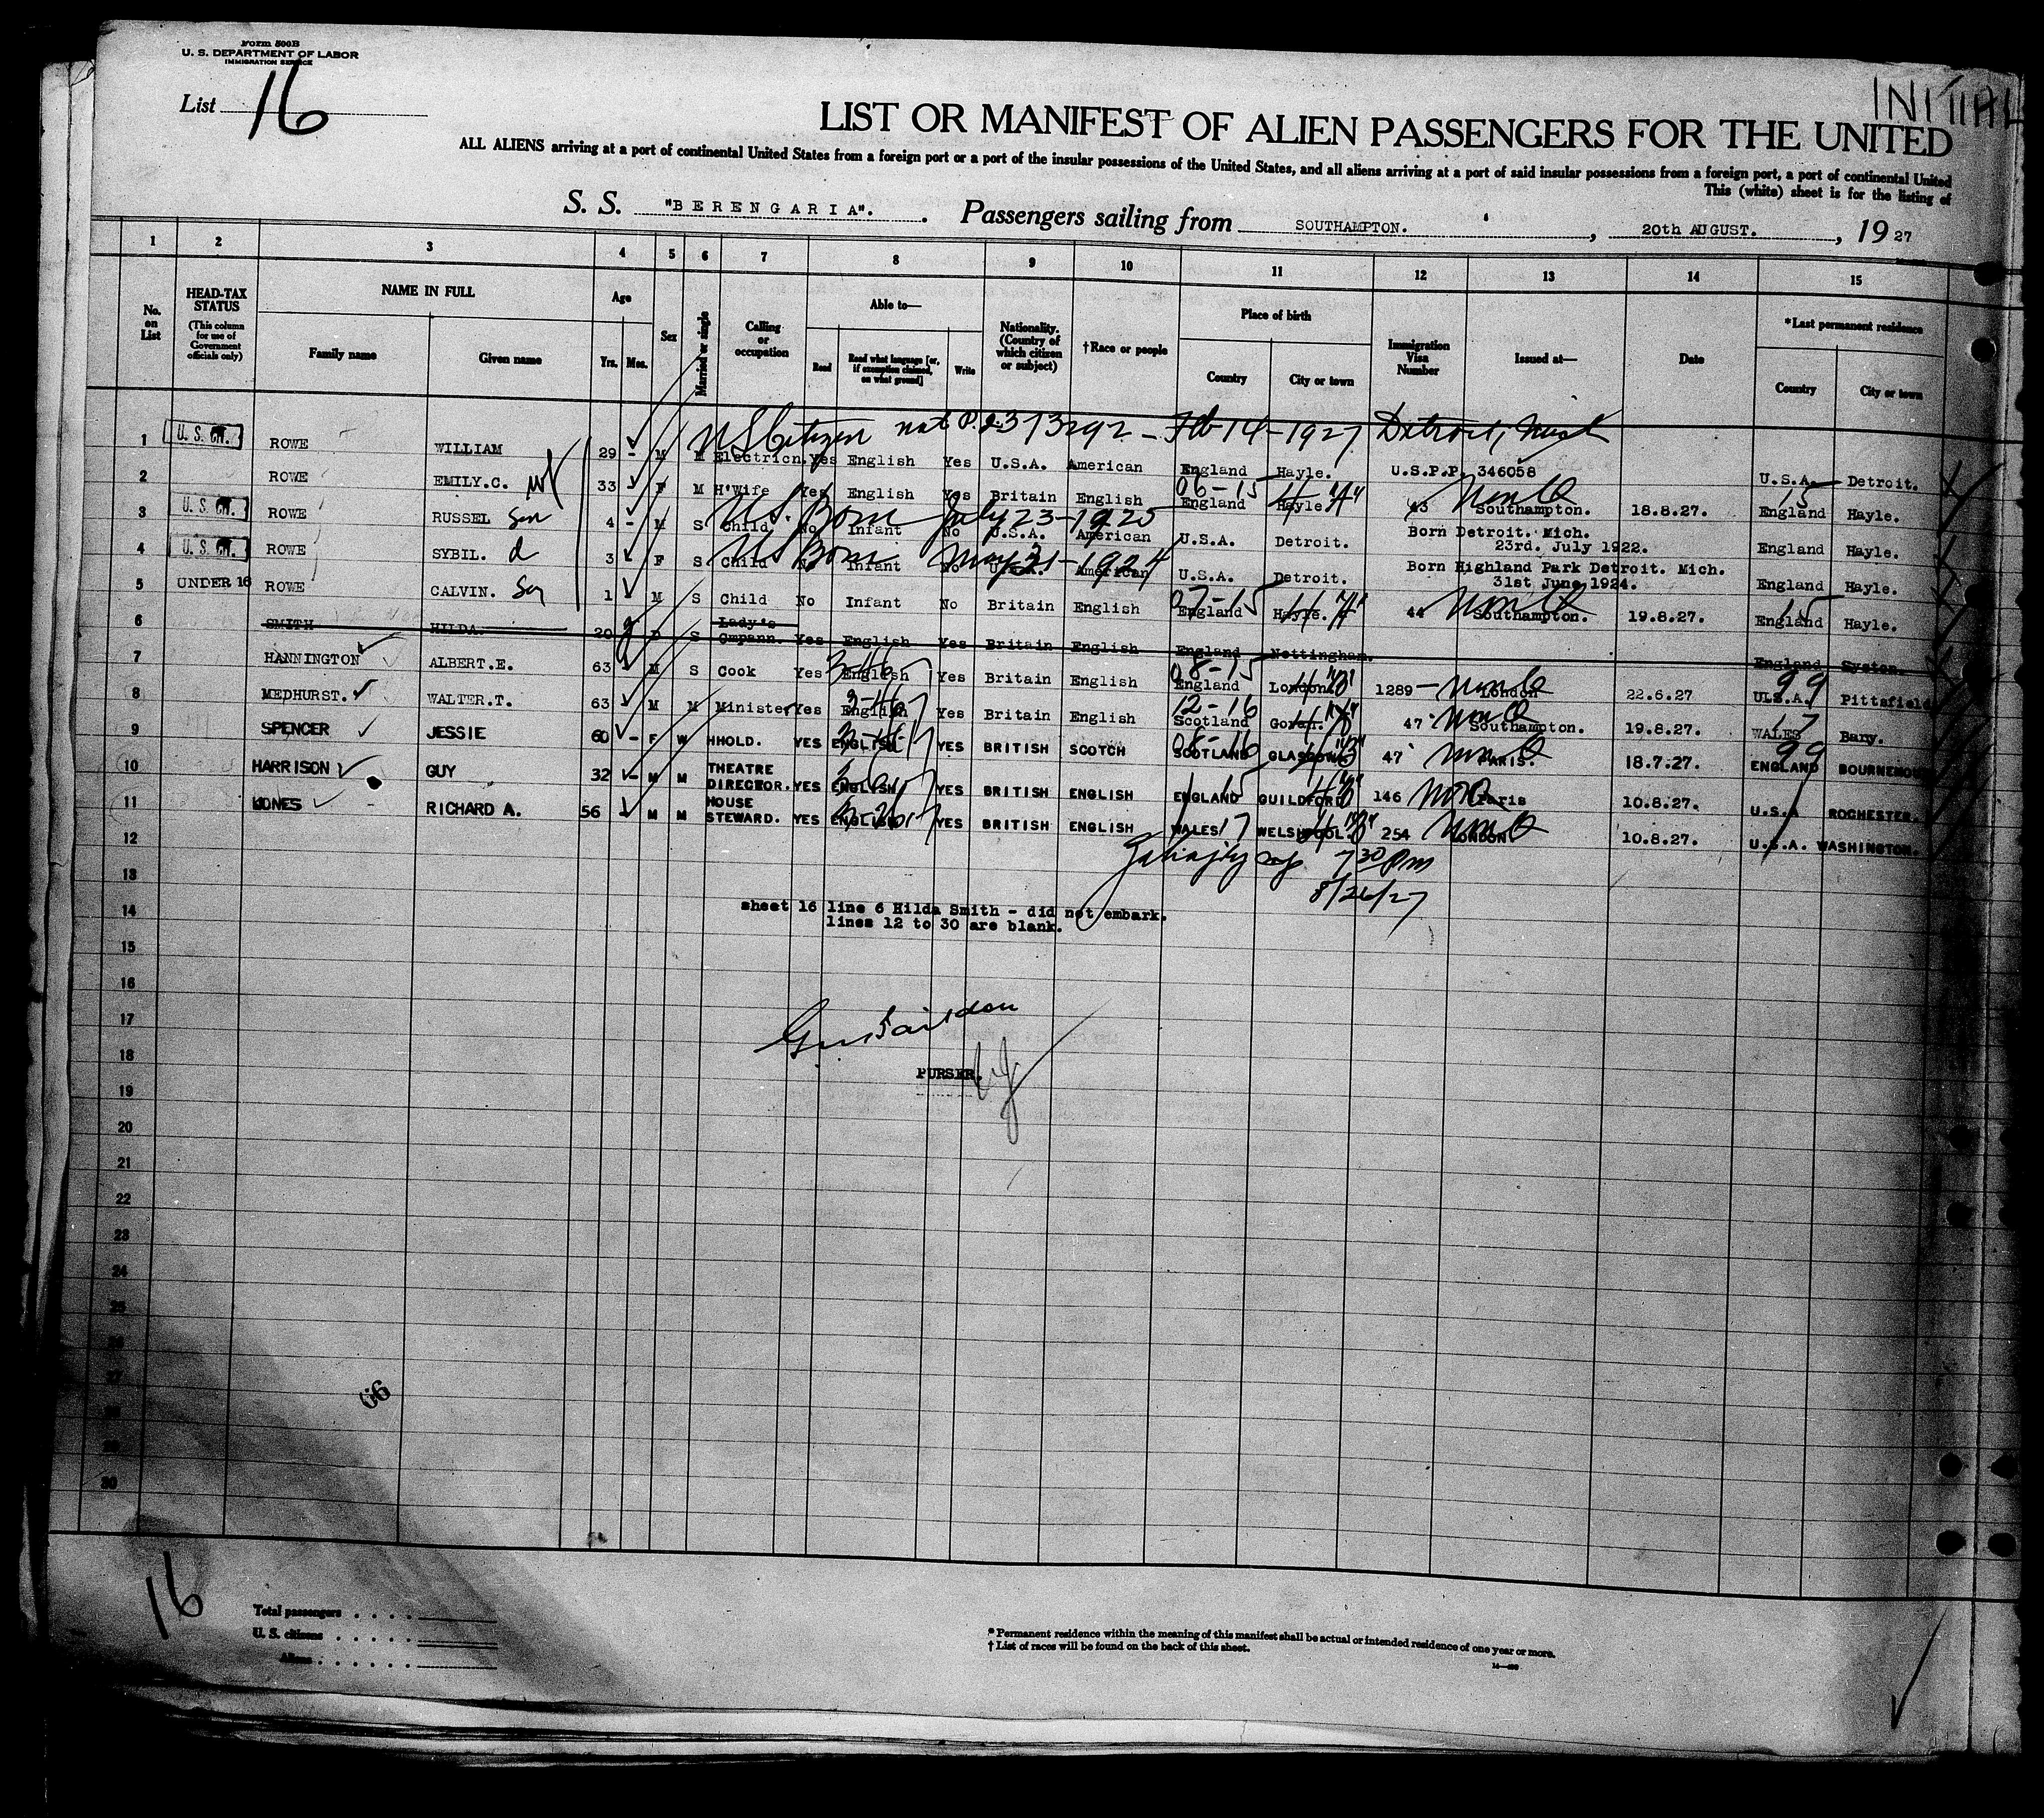 Form 500B
U. S. DEPARTMENT OF LABOR
IMMIGRATION SERVICE
INITIAL
List 16
LIST OR MANIFEST OF ALIEN PASSENGERS FOR THE UNITED
ALL ALIENS arriving at a port of continental United States from a foreign port or a port of the insular possessions of the United States, and all aliens arriving at a port of said insular possessions from a foreign port, a port of continental United
This (white) sheet is for the listing of
S. S. "BERENGARIA". Passengers sailing from SOUTHAMPTON. , 20th AUGUST. , 19 27
1 2 3 4 5 6 7 8 9 10 11 12 13 14 15
No. on List
HEAD-TAX STATUS (This column for use of Government officials only)
NAME IN FULL Family name Given name
Age Yrs. Mos.
Sex
Married or single
Calling or occupation
Able to— Read Read what language [or, if exemption claimed, on what ground] Write
Nationality. (Country of which citizen or subject)
†Race or people
Place of birth Country City or town
Immigration Visa Number
Issued at—
Date
*Last permanent residence Country City or town
US Citizen nat P. 2313292 - Feb 14-1927 Detroit, Mich
1 U. S. CIT. ROWE WILLIAM 29 - M M Electricn. Yes English Yes U.S.A. American England Hayle. U.S.P.P. 346058 U.S.A. Detroit.
06-15
2 ROWE EMILY.C. wf 33 F M H'Wife Yes English Yes Britain English England Hayle. 43 Southampton. 18.8.27. England Hayle. 15
US Born July 23-1925
3 U. S. CIT. ROWE RUSSEL son 4 - M S Child. No Infant No U.S.A. American U.S.A. Detroit. Born Detroit. Mich. 23rd. July 1922. England Hayle.
US Born May 31-1924
4 U. S. CIT. ROWE SYBIL. d 3 F S Child No Infant No U.S.A. American U.S.A. Detroit. Born Highland Park Detroit. Mich. 31st June 1924. England Hayle.
07-15
5 UNDER 16 ROWE CALVIN. Son 1 M S Child No Infant No Britain English England Hayle. 44 Southampton. 19.8.27. England Hayle. 15
6 SMITH HILDA. 20 F S Lady's Cmpann. Yes English Yes Britain English England Nottingham. England Syston.
08-15
7 HANNINGTON ALBERT.E. 63 M S Cook Yes English Yes Britain English England London. 1289 London 22.6.27 U.S.A. Pittsfield 99
12-16
8 MEDHURST. WALTER.T. 63 M M Minister Yes English Yes Britain English Scotland Govan. 47 Southampton. 19.8.27. WALES Bary. 17
08-16
9 SPENCER JESSIE 60 - F W HHOLD. YES ENGLISH YES BRITISH SCOTCH SCOTLAND GLASGOW 47 PARIS. 18.7.27. ENGLAND BOURNEMOU 99
10 HARRISON GUY 32 - M M THEATRE DIRECTOR. YES ENGLISH YES BRITISH ENGLISH ENGLAND GUILDFORD 146 Paris 10.8.27. U.S.A ROCHESTER.
11 JONES RICHARD A. 56 M M HOUSE STEWARD. YES ENGLISH YES BRITISH ENGLISH WALES WELSHPOOL 254 LONDON 10.8.27. U.S.A. WASHINGTON.
12
7 30 Pm
13
8/26/27
14
sheet 16 line 6 Hilda Smith - did not embark.
lines 12 to 30 are blank.
15
16
17
18
PURSER.
19
20
21
22
23
24
25
26
27
06
28
29
30
16
Total passengers . . . .
U. S. citizens . . . . .
Aliens . . . . . .
* Permanent residence within the meaning of this manifest shall be actual or intended residence of one year or more.
† List of races will be found on the back of this sheet.